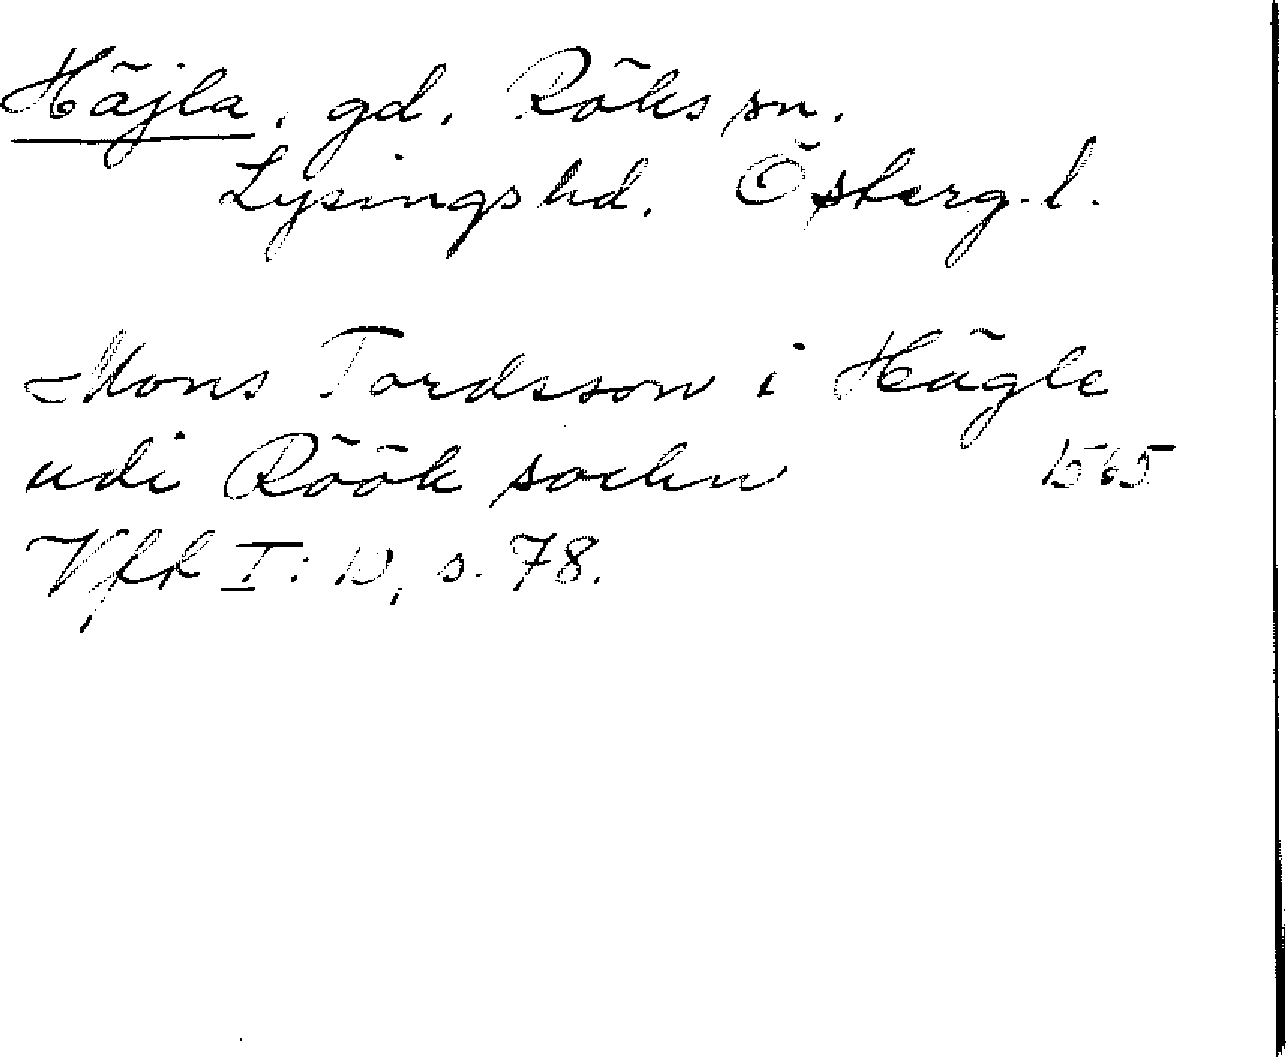 Häjla. gd. Röks sn.
Lysings hd. Österg. l.
Mons Tordsson i Hägle
udi Röök sochn 1565
Vfk I: 10, s. 78.